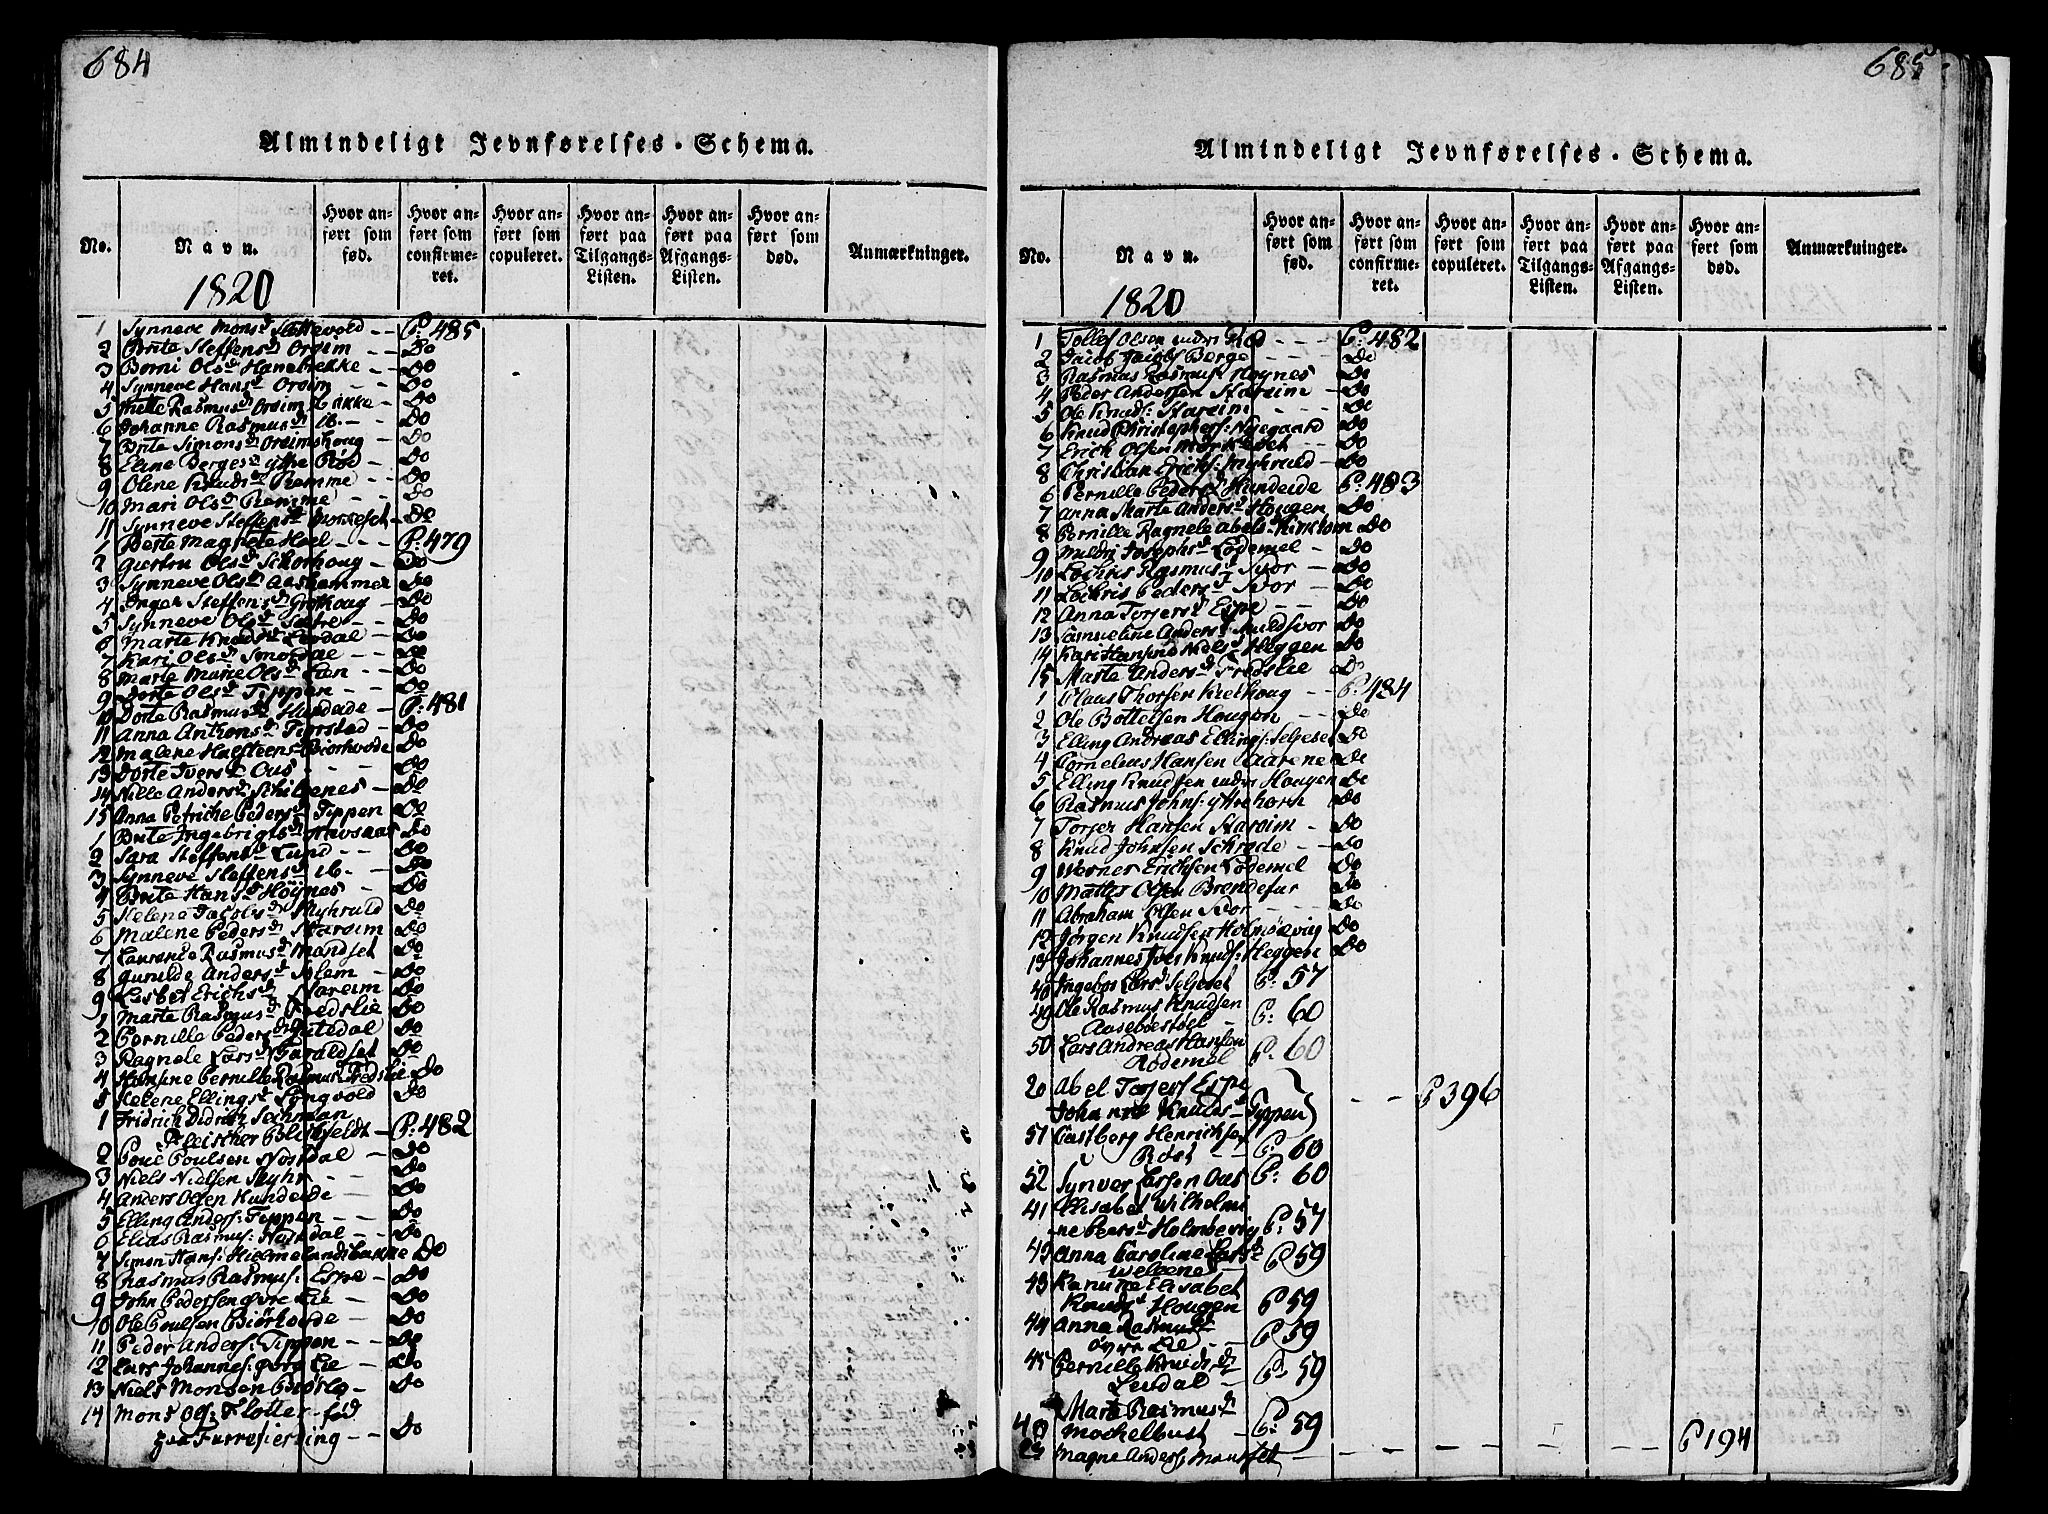 684
Almindeligt Jevnførelses-Schema.
No.
Navn.
Hvor anført som fød.
Hvor anført som confirmeret.
Hvor anført som copuleret.
Hvor anført paa Tilgangs-Listen.
Hvor anført paa Afgangs-Listen.
Hvor anført som død.
Anmærkninger.
1820
1 Synneve Monsd. - - P. 485
2 Brite Steffensd. Orsim - - Do
3 Berni Olsd. Hanebrekke - Do
4 Synneve Hansd. Orsim - - Do
5 Mette Rasmusd. Orsim - Do
6 Johanne Rasmusd. ib. - - Do
7 Brite Simonsd. Orsimshoug - Do
8 Eline Bergesd. ytre Rød - Do
9 Olene Knudsd. Remme - Do
10 Mari Olsd. Remme - Do
11 Synneve Steffensd. - Do
1 Berte Magrete Hoel - - - P. 479
2 Giertru Olsd. Schorhoug - Do
3 Synneve Olsd. Aashammer Do
4 Inger Steffensd. Grothoug - Do
5 Synneve Olsd. Sætre - Do
6 Marte Knudsd. Levdal - Do
7 Kari Olsd. Smordal - Do
8 Marte Marie Olsd. Lien - - Do
9 Dorte Olsd. Tippen - - Do
10 Dorte Rasmusd. Hundeide - P. 481
11 Anna Antonsd. Tiørstad - Do
12 Malene Halsteensd. Biørhovde Do
13 Dorte Iversd. Aus - - - Do
14 Nille Andersd. Schibenes - Do
15 Anna Petriche Pedersd. Tippen Do
1 Brite Ingebrigtsd. Navsaas Do
2 Sara Steffensd. Lund - - - Do
3 Synneve Steffensd. ib. - - Do
4 Brite Hansd. Høynes - - Do
5 Helena Jacobsd. Myhruld - Do
6 Malene Pedersd. Stareim - Do
7 Laurence Rasmusd. Mandset Do
8 Gurulde Andersd. Solem - Do
9 Lisbet Erichsd. Nareim Do
1 Marte Rasmusd. Fredslie Do
2 Pernille Pedersd. - Do
3 Ragnele Larsd. Haraldset Do
4 Hansine Pernille Rasmusd. Fredslie Do
5 Helene Ellingsd. Longvold Do
1 Fridrich Didrich Sechman
Fleischer Blichfeldt - P. 482
2 Poul Poulsen Nosdal - Do
3 Niels Nielsen Myhr - - Do
4 Anders Olsen Hundeide - Do
5 Elling Anders: Tippen - - Do
6 Elias Rasmus: Nosdal - Do
7 Simon Hans: Hielmelandsbakke Do
8 Rasmus Rasmus: Espe - Do
9 John Pedersen øvre Lie - Do
10 Ole Poulsen Biørhovde - Do
11 Peder Anders: Tippen - - Do
12 Lars Johannes: øvre Lie - Do
13 Niels Monsen Biørlo - Do
14 Mons Ols: Flotter - fød
paa Furrefierding - - Do
685
Almindeligt Jevnførelses-Schema.
No.
Navn.
Hvor anført som fød.
Hvor anført som confirmeret.
Hvor anført som copuleret.
Hvor anført paa Tilgangs-Listen.
Hvor anført paa Afgangs-Listen.
Hvor anført som død.
Anmærkninger.
1820
1 Tollef Olsen indre Rød - - - P. 482
2 Jacob Jacobs Berge - - - Do
3 Rasmus Rasmus: Høynes Do
4 Peder Andersen Stareim - Do
5 Ole Knuds: Stareim - - - Do
6 Knud Christophers: Nygaard Do
7 Erich Olsen - Do
8 Christian Erichs: Myhruld - Do
6 Pernille Pedersd. Hundeide P. 483
7 Anna Marte Andersd. Hougen Do
8 Pernille Ragnele Abelsd. Kirkhorn Do
9 Mildri Josephsd. Lødemel - Do
10 Lochris Rasmusd. Svor - - Do
11 Lochris Pedersd. Svor - - Do
12 Anna Torgersd. Espe - - - Do
13 Samueline Andersd. Muldsvor Do
14 Kari Hansine Nielsd. Heggen Do
15 Marte Andersd. Fredslie Do
1 Claus Thorsen Kielhoug - - P. 484
2 Ole Bottelsen Hougen - - Do
3 Elling Andreas Ellings: Seljeset Do
4 Cornelius Hansen Aarene Do
5 Elling Knudsen indre Hougen Do
6 Rasmus Johns: ytrehorn Do
7 Torger Hansen Stareim - Do
8 Knud Johnsen Schrede - - Do
9 Werner Erichsen Lødemel Do
10 Mattis Olsen Brendefur Do
11 Abraham Olsen Svor - - - - Do
12 Jørgen Knudsen Holmøevig Do
13 Johannes Knuds: Heggen Do
40 Ingebor Larsd. Seljeset P. 57
49 Ole Rasmus Knudsen
Aasebøestøel - P: 60
50 Lars Andreas Hansen
Rødemel P. 60
20 Abel Torgers Espe
Johanne Knudsd. Tippen } - - P 396
51 Castberg Henrichsen
Røst - - P: 60
52 Synver Larsen Aus P: 60
41 Elisabet Wilhelmi
ne Peersd. Holmøevig P: 57
42 Anna Caroline Larsd.
Welvene - P 59
43 Kanutte Elisabet
Knudsd. Hougen P 59
44 Anne Rasmusd.
øvre Lie - P 59
45 Pernille Knudsd.
Levdal - P. 59
Marte Rasmusd.
Mochelbust - P: 59
24 Magne Anders: Mandset - - - - - P 194